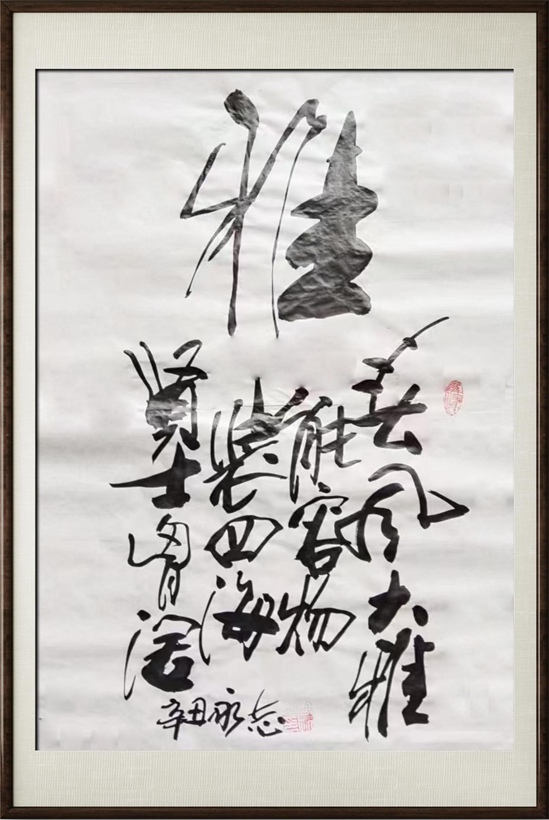 雅
春风大雅
能容物
装四海
贤士胸阔
辛丑永志